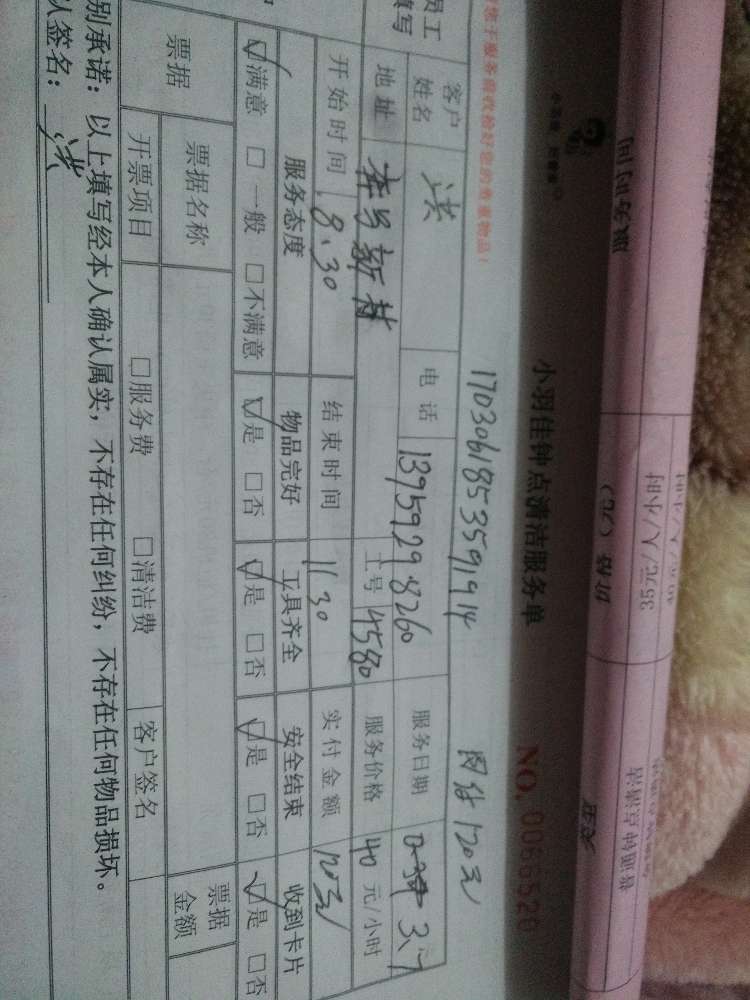 服务时间
价格（元）
35元/人/小时
小羽佳钟点清洁服务单
NO. 0066520
1703061853591914 网付120元
客户姓名 洪 电话 13959298260 服务日期 3.7
地址 新村 工号 4580 服务价格 40 元/小时
开始时间 8.30 结束时间 11 30 实付金额 120元
服务态度 物品完好 工具齐全 安全结束 收到卡片
☑满意 □一般 □不满意 ☑是 □否 ☑是 □否 ☑是 □否 ☑是 □否
票据 票据名称 票据金额
开票项目 □服务费 □清洁费 客户签名
别承诺：以上填写经本人确认属实，不存在任何纠纷，不存在任何物品损坏。
认签名：洪